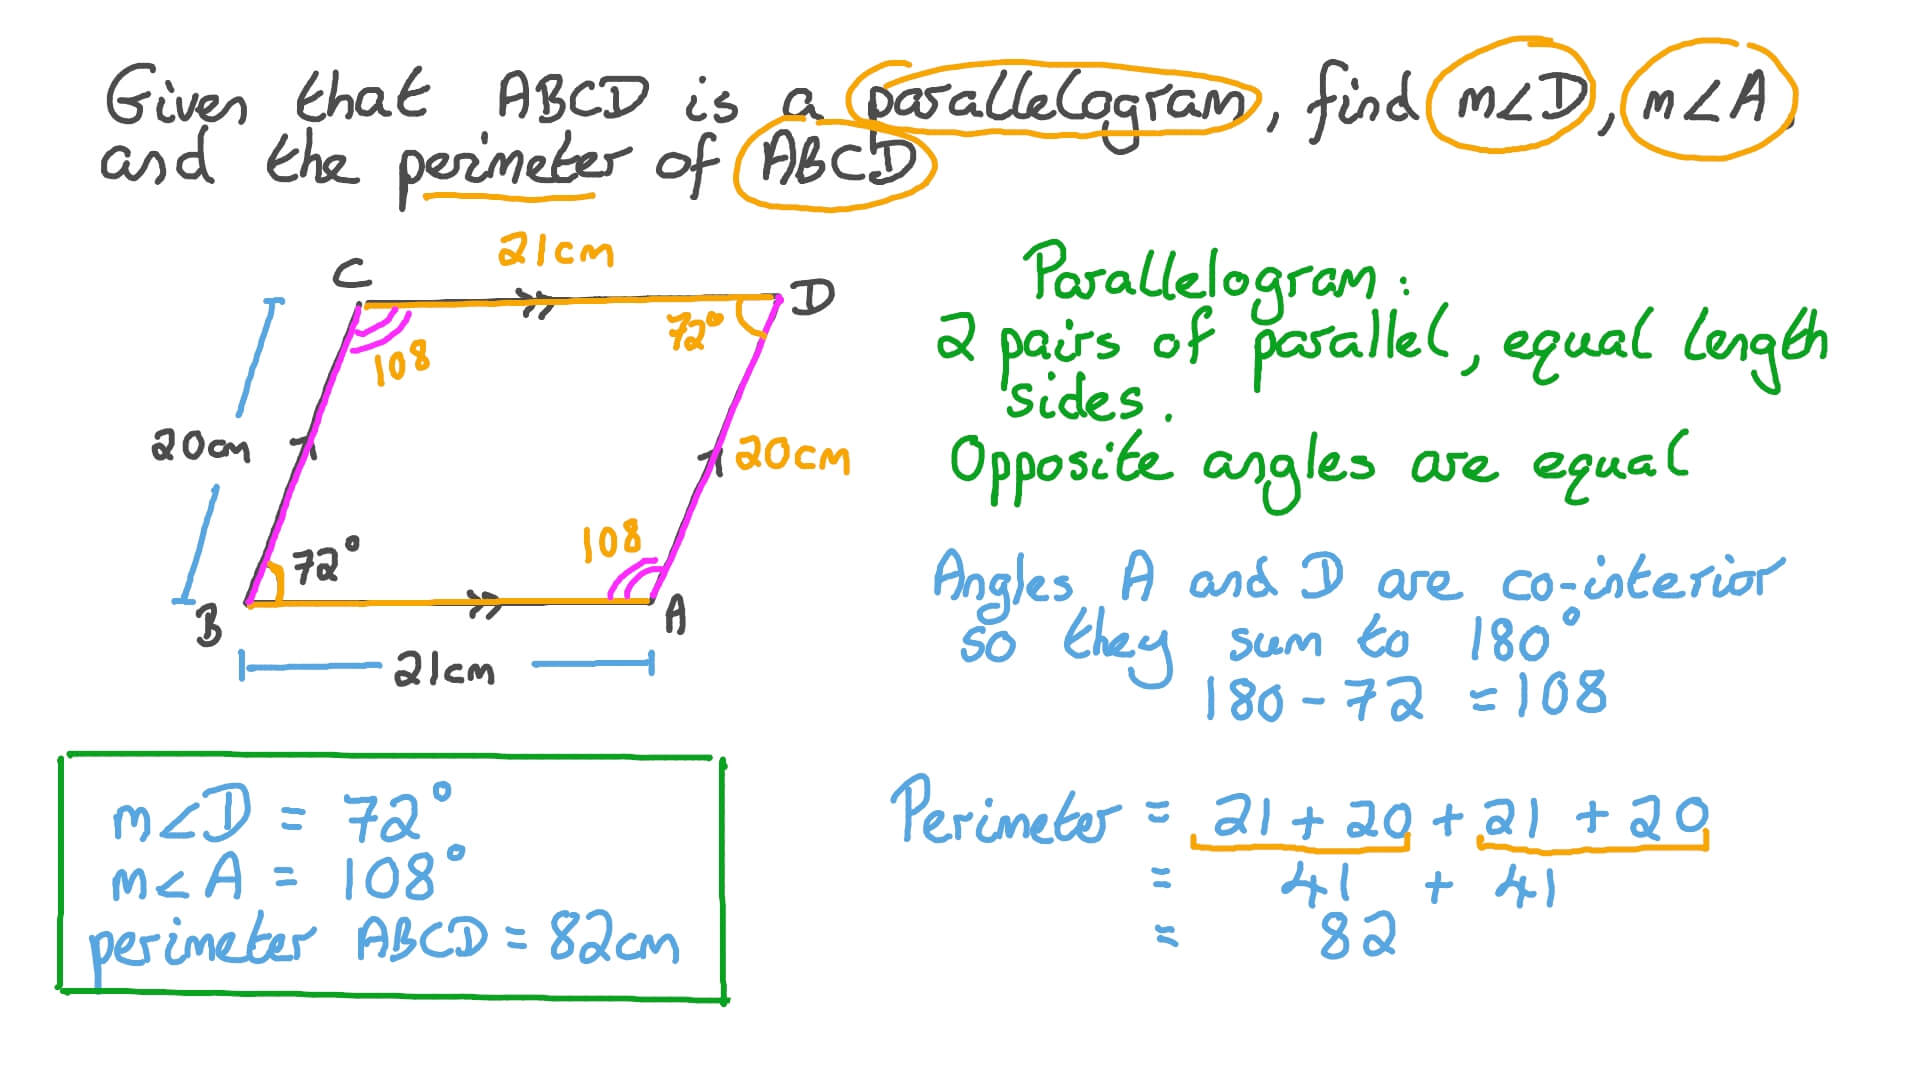 Given that ABCD is a parallelogram, find m∠D, m∠A
and the perimeter of ABCD
21cm
C
D
72°
108
20cm
20cm
108
72°
B
A
21cm
Parallelogram:
2 pairs of parallel, equal length
sides.
Opposite angles are equal
Angles A and D are co-interior
so they sum to 180°
180 - 72 = 108
m∠D = 72°
m∠A = 108°
perimeter ABCD = 82cm
Perimeter = 21 + 20 + 21 + 20
= 41 + 41
= 82